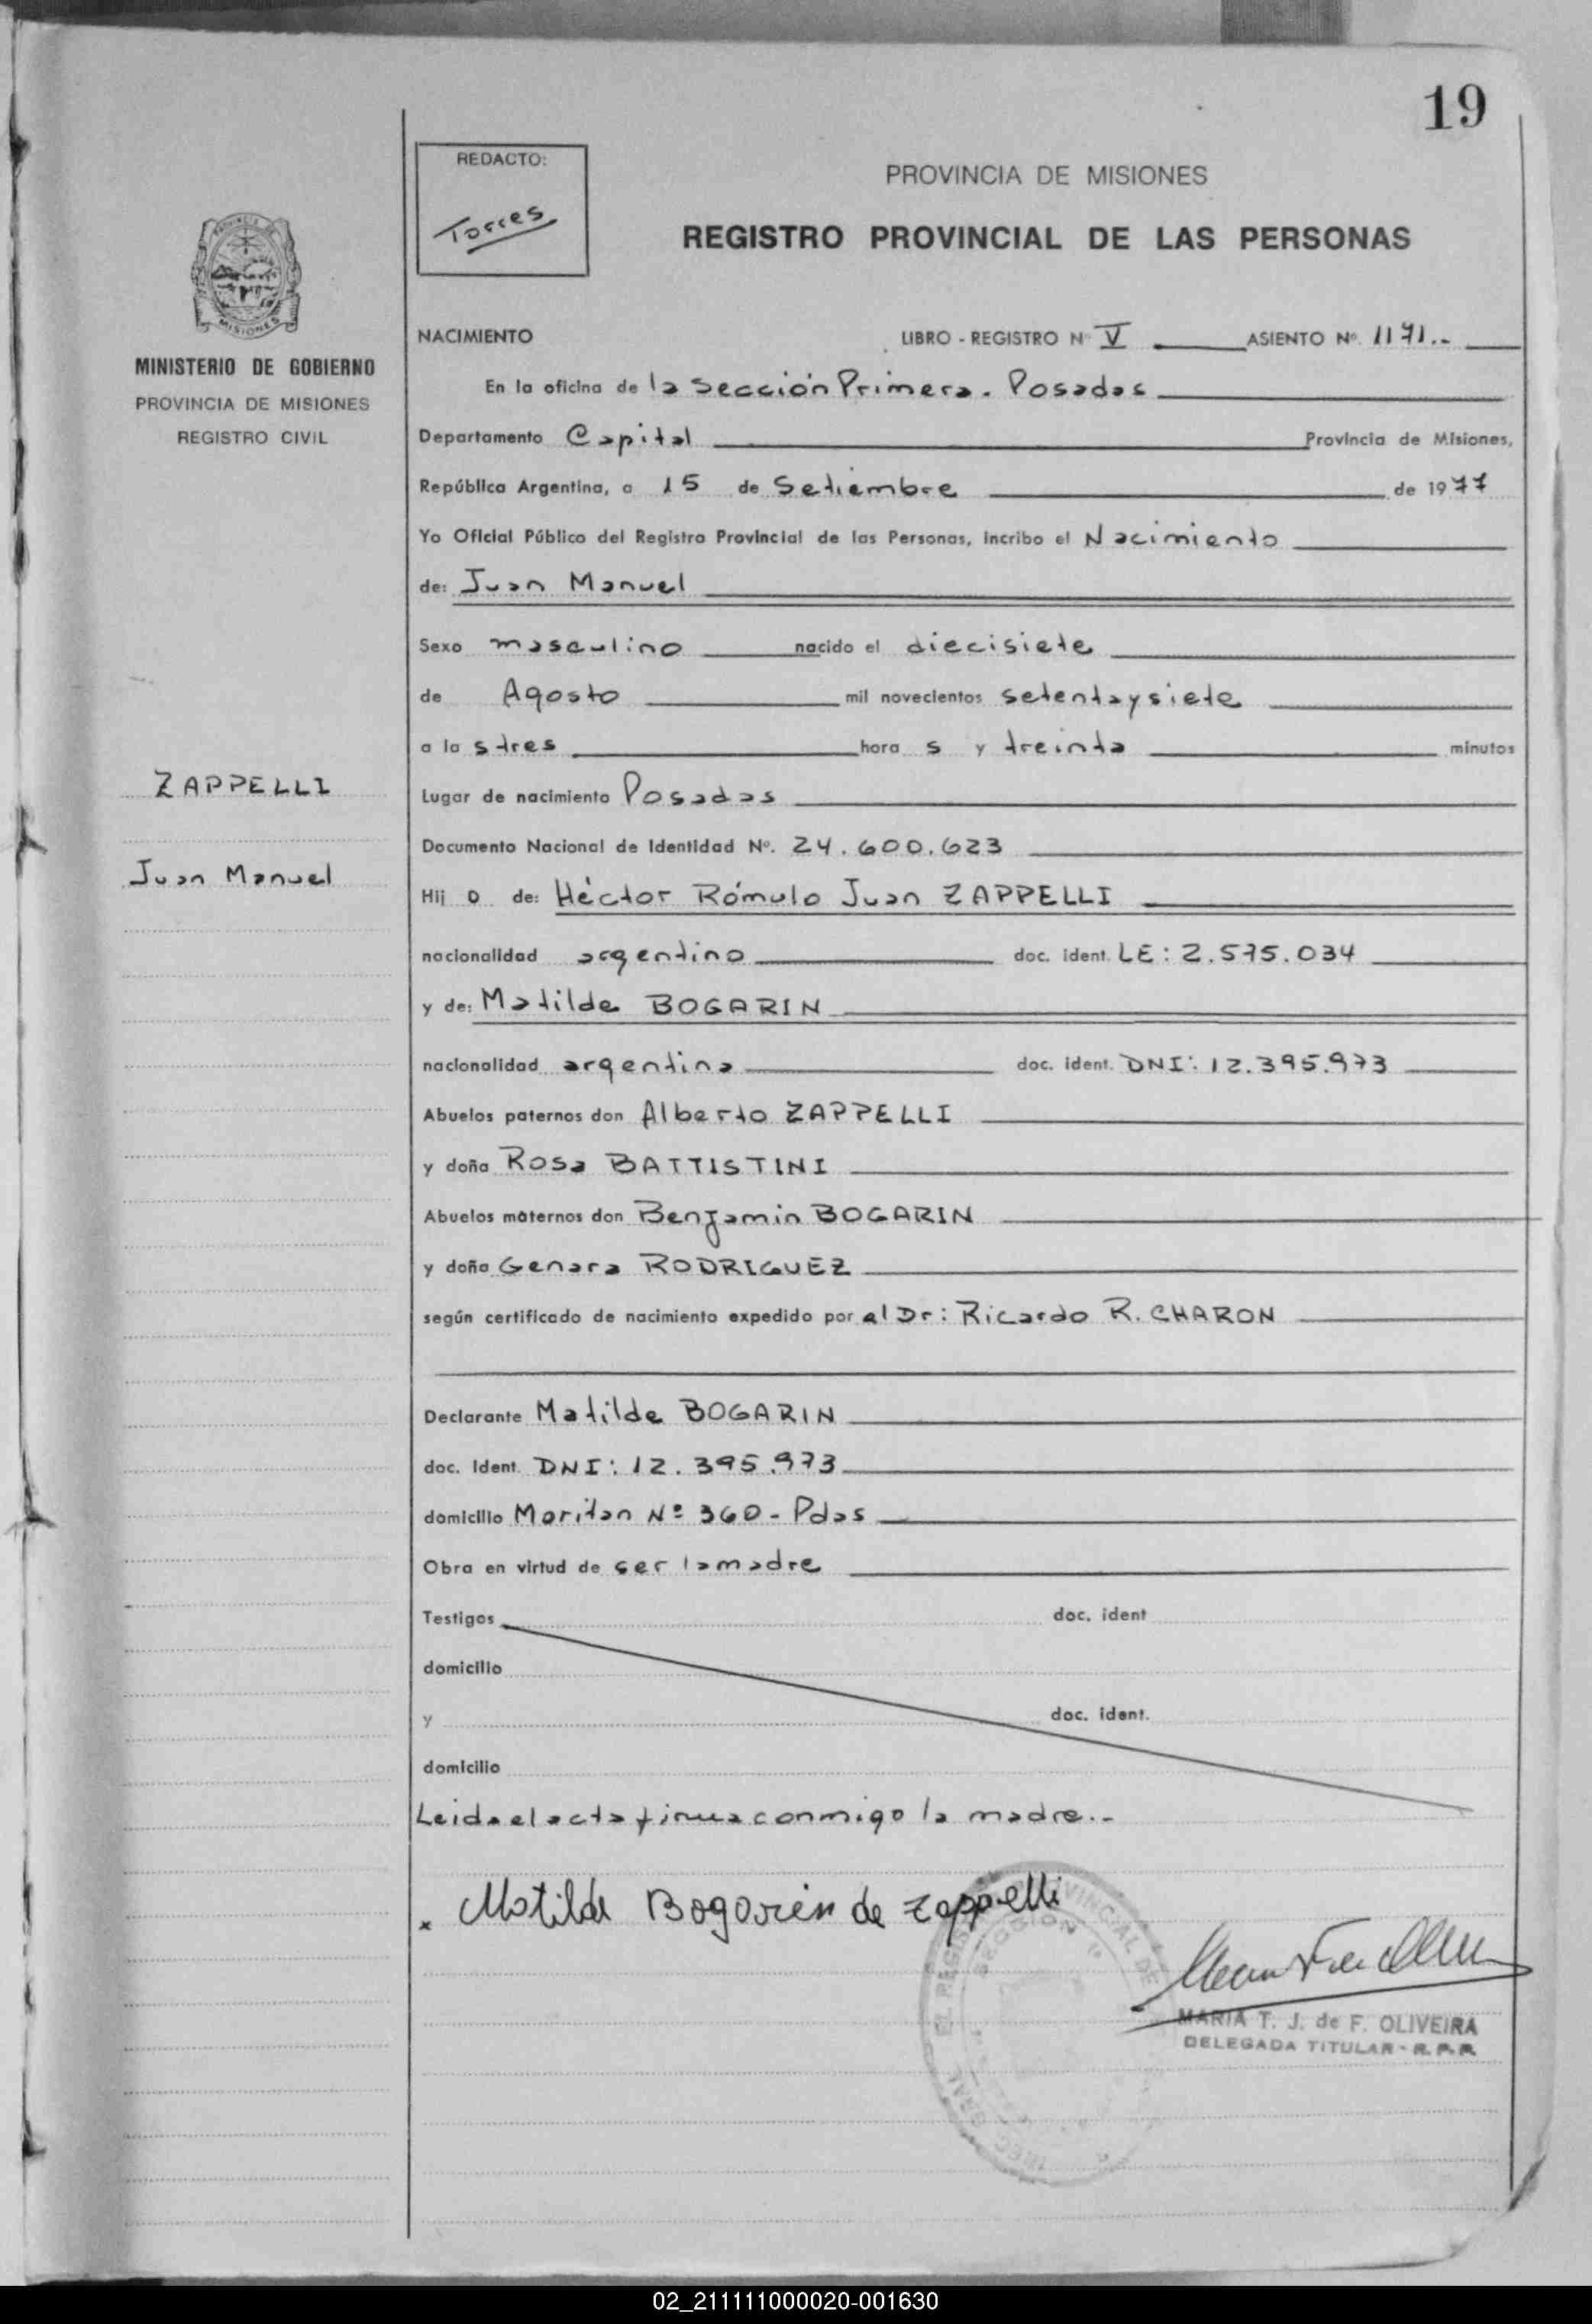 19
REDACTO:
Torres
PROVINCIA DE MISIONES
REGISTRO PROVINCIAL DE LAS PERSONAS
MISIONES
MINISTERIO DE GOBIERNO
PROVINCIA DE MISIONES
REGISTRO CIVIL
NACIMIENTO LIBRO - REGISTRO Nº V ASIENTO Nº. 1171.-
En la oficina de la Sección Primera. Posadas
Departamento Capital Provincia de Misiones,
República Argentina, a 15 de Setiembre de 1977
Yo Oficial Público del Registro Provincial de las Personas, incribo el Nacimiento
de: Juan Manuel
Sexo masculino nacido el diecisiete
de Agosto mil novecientos setenta y siete
a la s tres hora s y treinta minutos
ZAPPELLI
Juan Manuel
Lugar de nacimiento Posadas
Documento Nacional de Identidad Nº. 24.600.623
Hij o de: Héctor Rómulo Juan ZAPPELLI
nacionalidad argentino doc. ident. LE: 2.575.034
y de: Matilde BOGARIN
nacionalidad argentina doc. ident. DNI: 12.395.973
Abuelos paternos don Alberto ZAPPELLI
y doña Rosa BATTISTINI
Abuelos maternos don Benjamin BOGARIN
y doña Genara RODRIGUEZ
según certificado de nacimiento expedido por el Dr: Ricardo R. CHARON
Declarante Matilde BOGARIN
doc. Ident. DNI: 12.395.973
domicilio Moritan Nº 360 - Pdas
Obra en virtud de ser la madre
Testigos doc. ident
domicilio
y doc. ident.
domicilio
Leida el acta firma conmigo la madre.-
x Matilde Bogarin de Zappelli
SECCION 1ª
MARIA T. J. de F. OLIVEIRA
DELEGADA TITULAR - R.P.P.
02_211111000020-001630